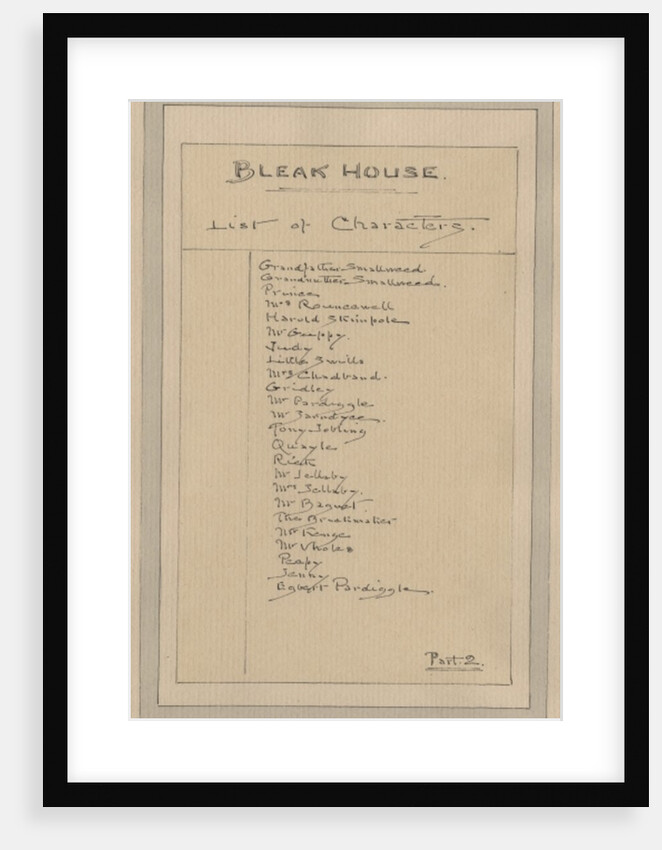 BLEAK HOUSE.
List of Characters.
Grandfather Smallweed.
Grandmother Smallweed.
Prince
Mrs Rouncewell
Harold Skimpole
Mr Guppy.
Judy
Little Swills
Mrs Chadband.
Gridley
Mr Pardiggle
Mr Jarndyce.
Tony Jobling
Quayle
Rick
Mr Jellaby
Mrs Jellaby.
Mr Bagnet.
The Brickmaker
Mr Kenge
Mr Vholes
Peepy
Jenny
Egbert Pardiggle.
Part 2.